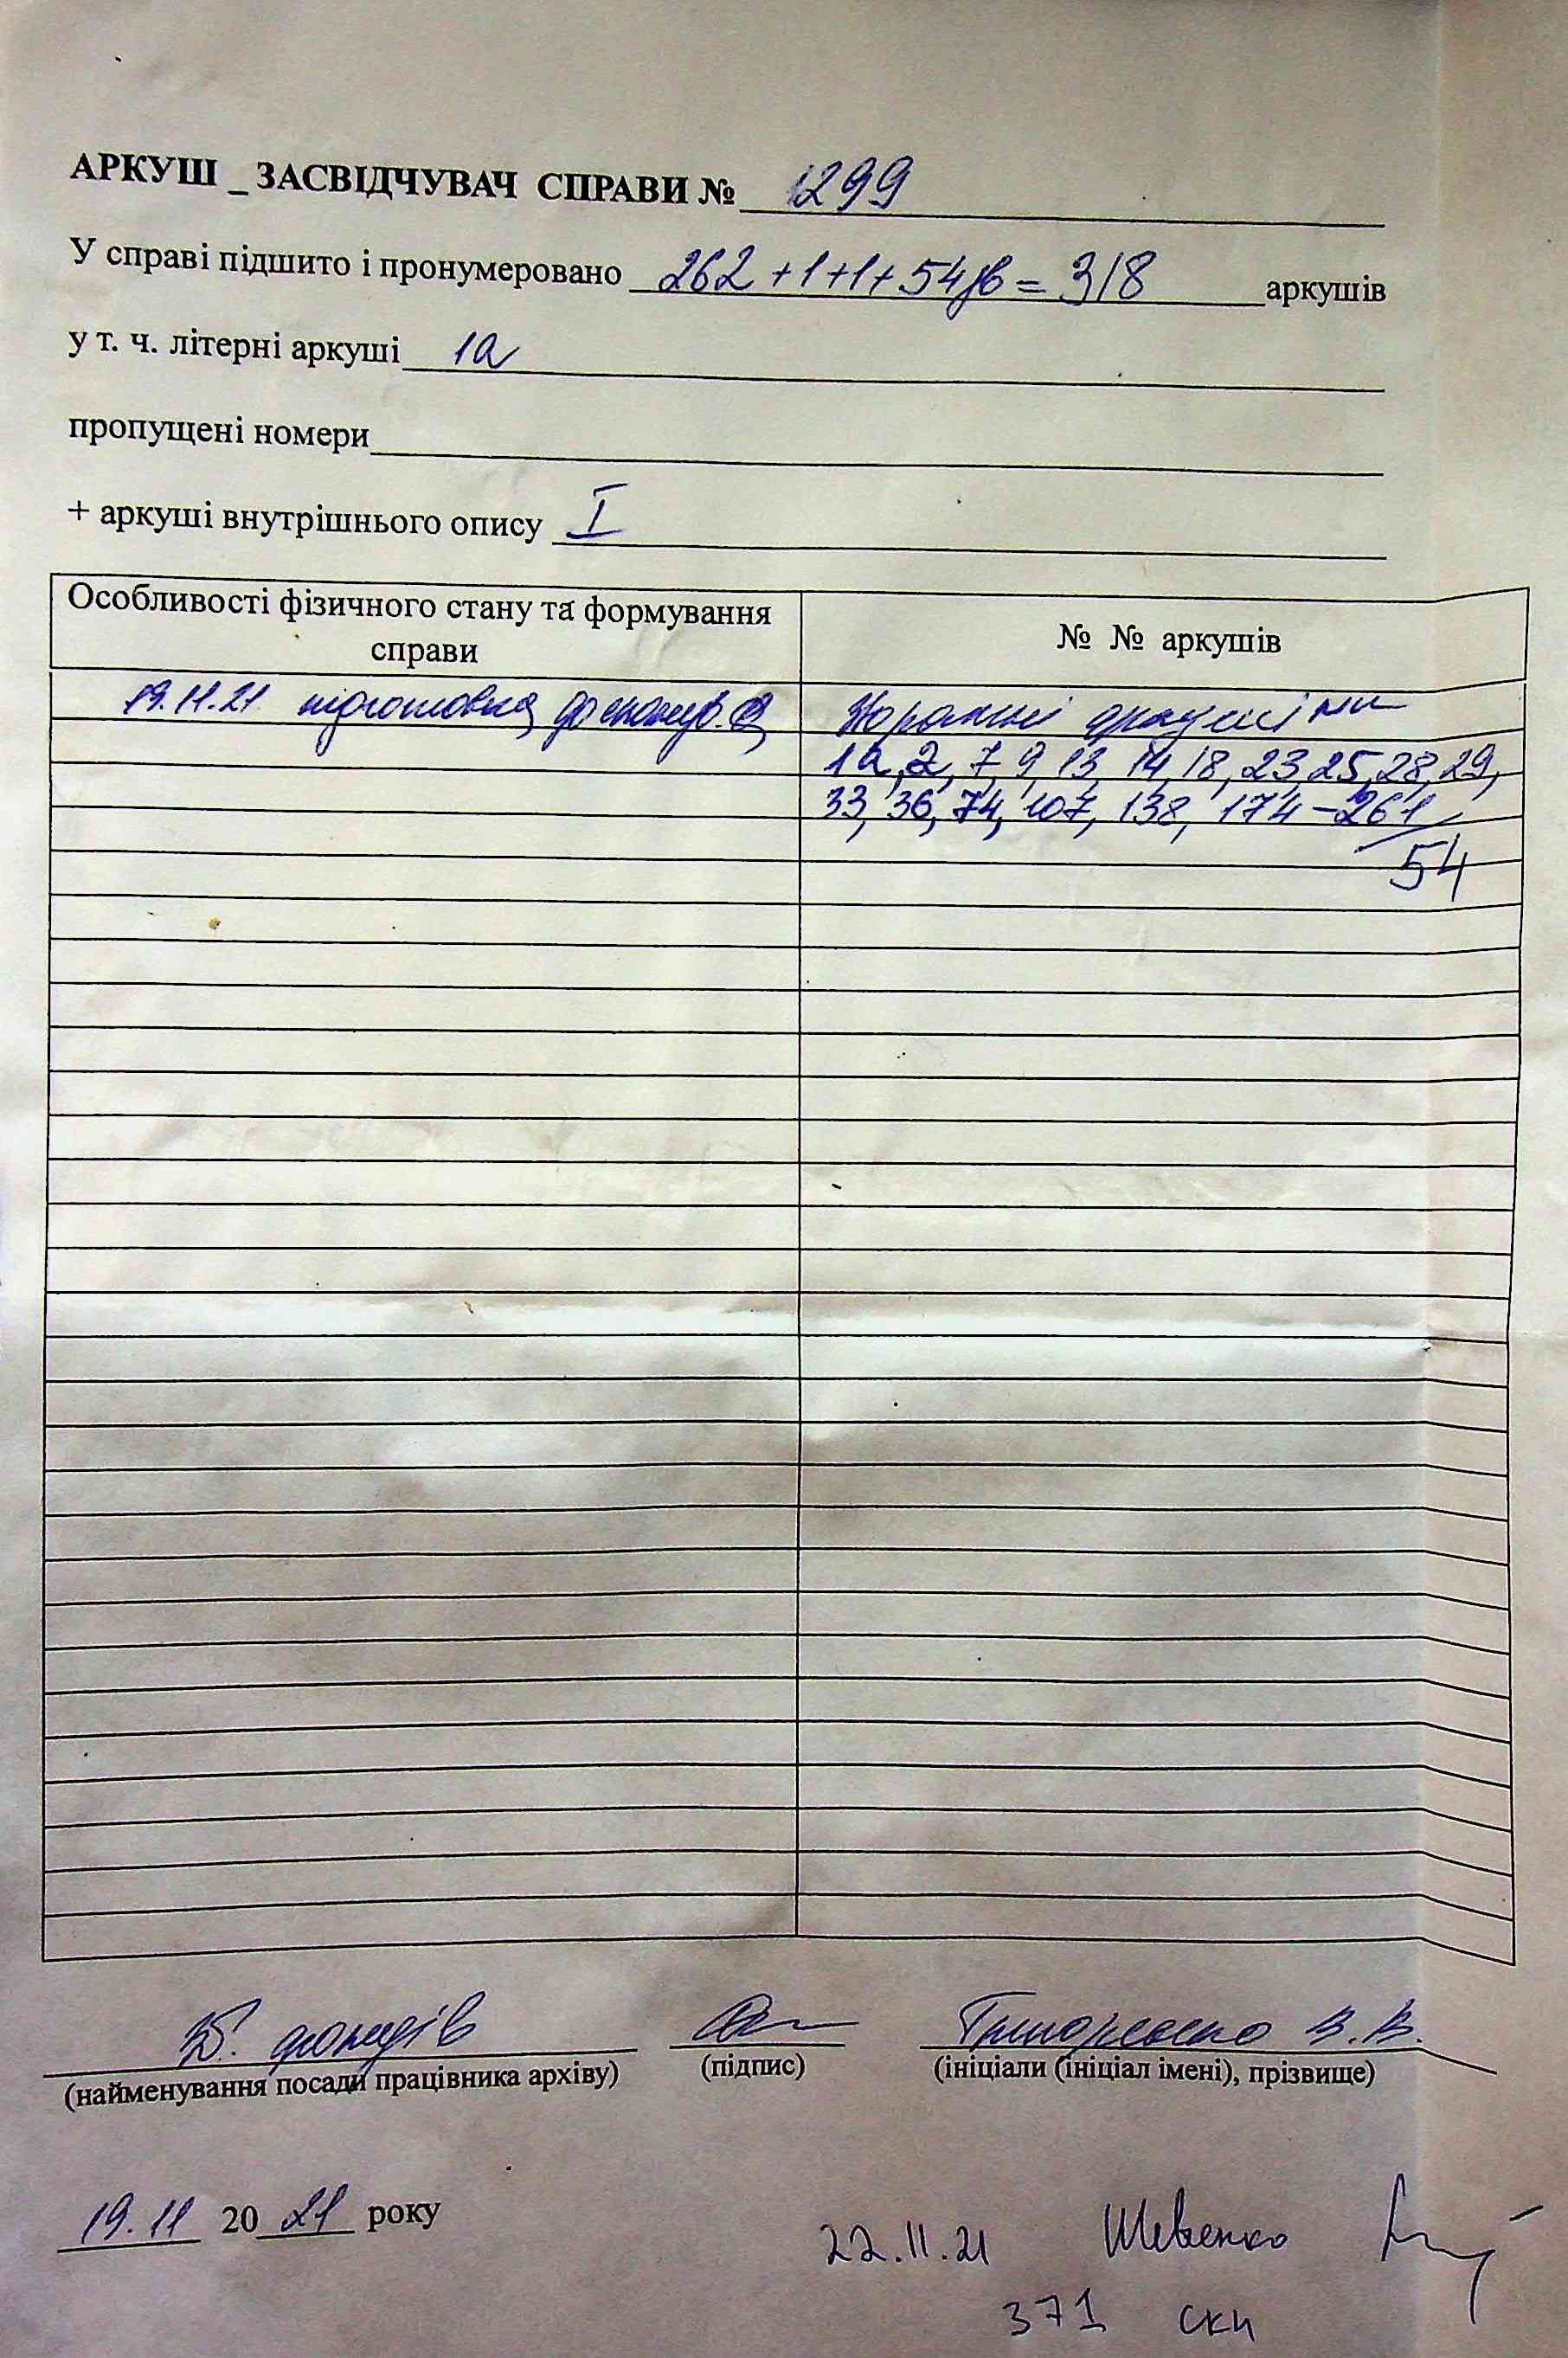 АРКУШ _ ЗАСВІДЧУВАЧ СПРАВИ № 1299
У справі підшито і пронумеровано 262 +1+1+54зв = 318 аркушів
у т. ч. літерні аркуші 1а
пропущені номери
+ аркуші внутрішнього опису I
Особливості фізичного стану та формування справи
№ № аркушів
19.11.21 підготовка до
1а, 2, 7, 9, 13, 14, 18, 23, 25, 28, 29,
33, 36, 74, 107, 138, 174 – 261
54
фондів
(найменування посади працівника архіву) (підпис) (ініціали (ініціал імені), прізвище)
В.В.
19.11 2021 року
22.11.21 Шевченко
371 ски